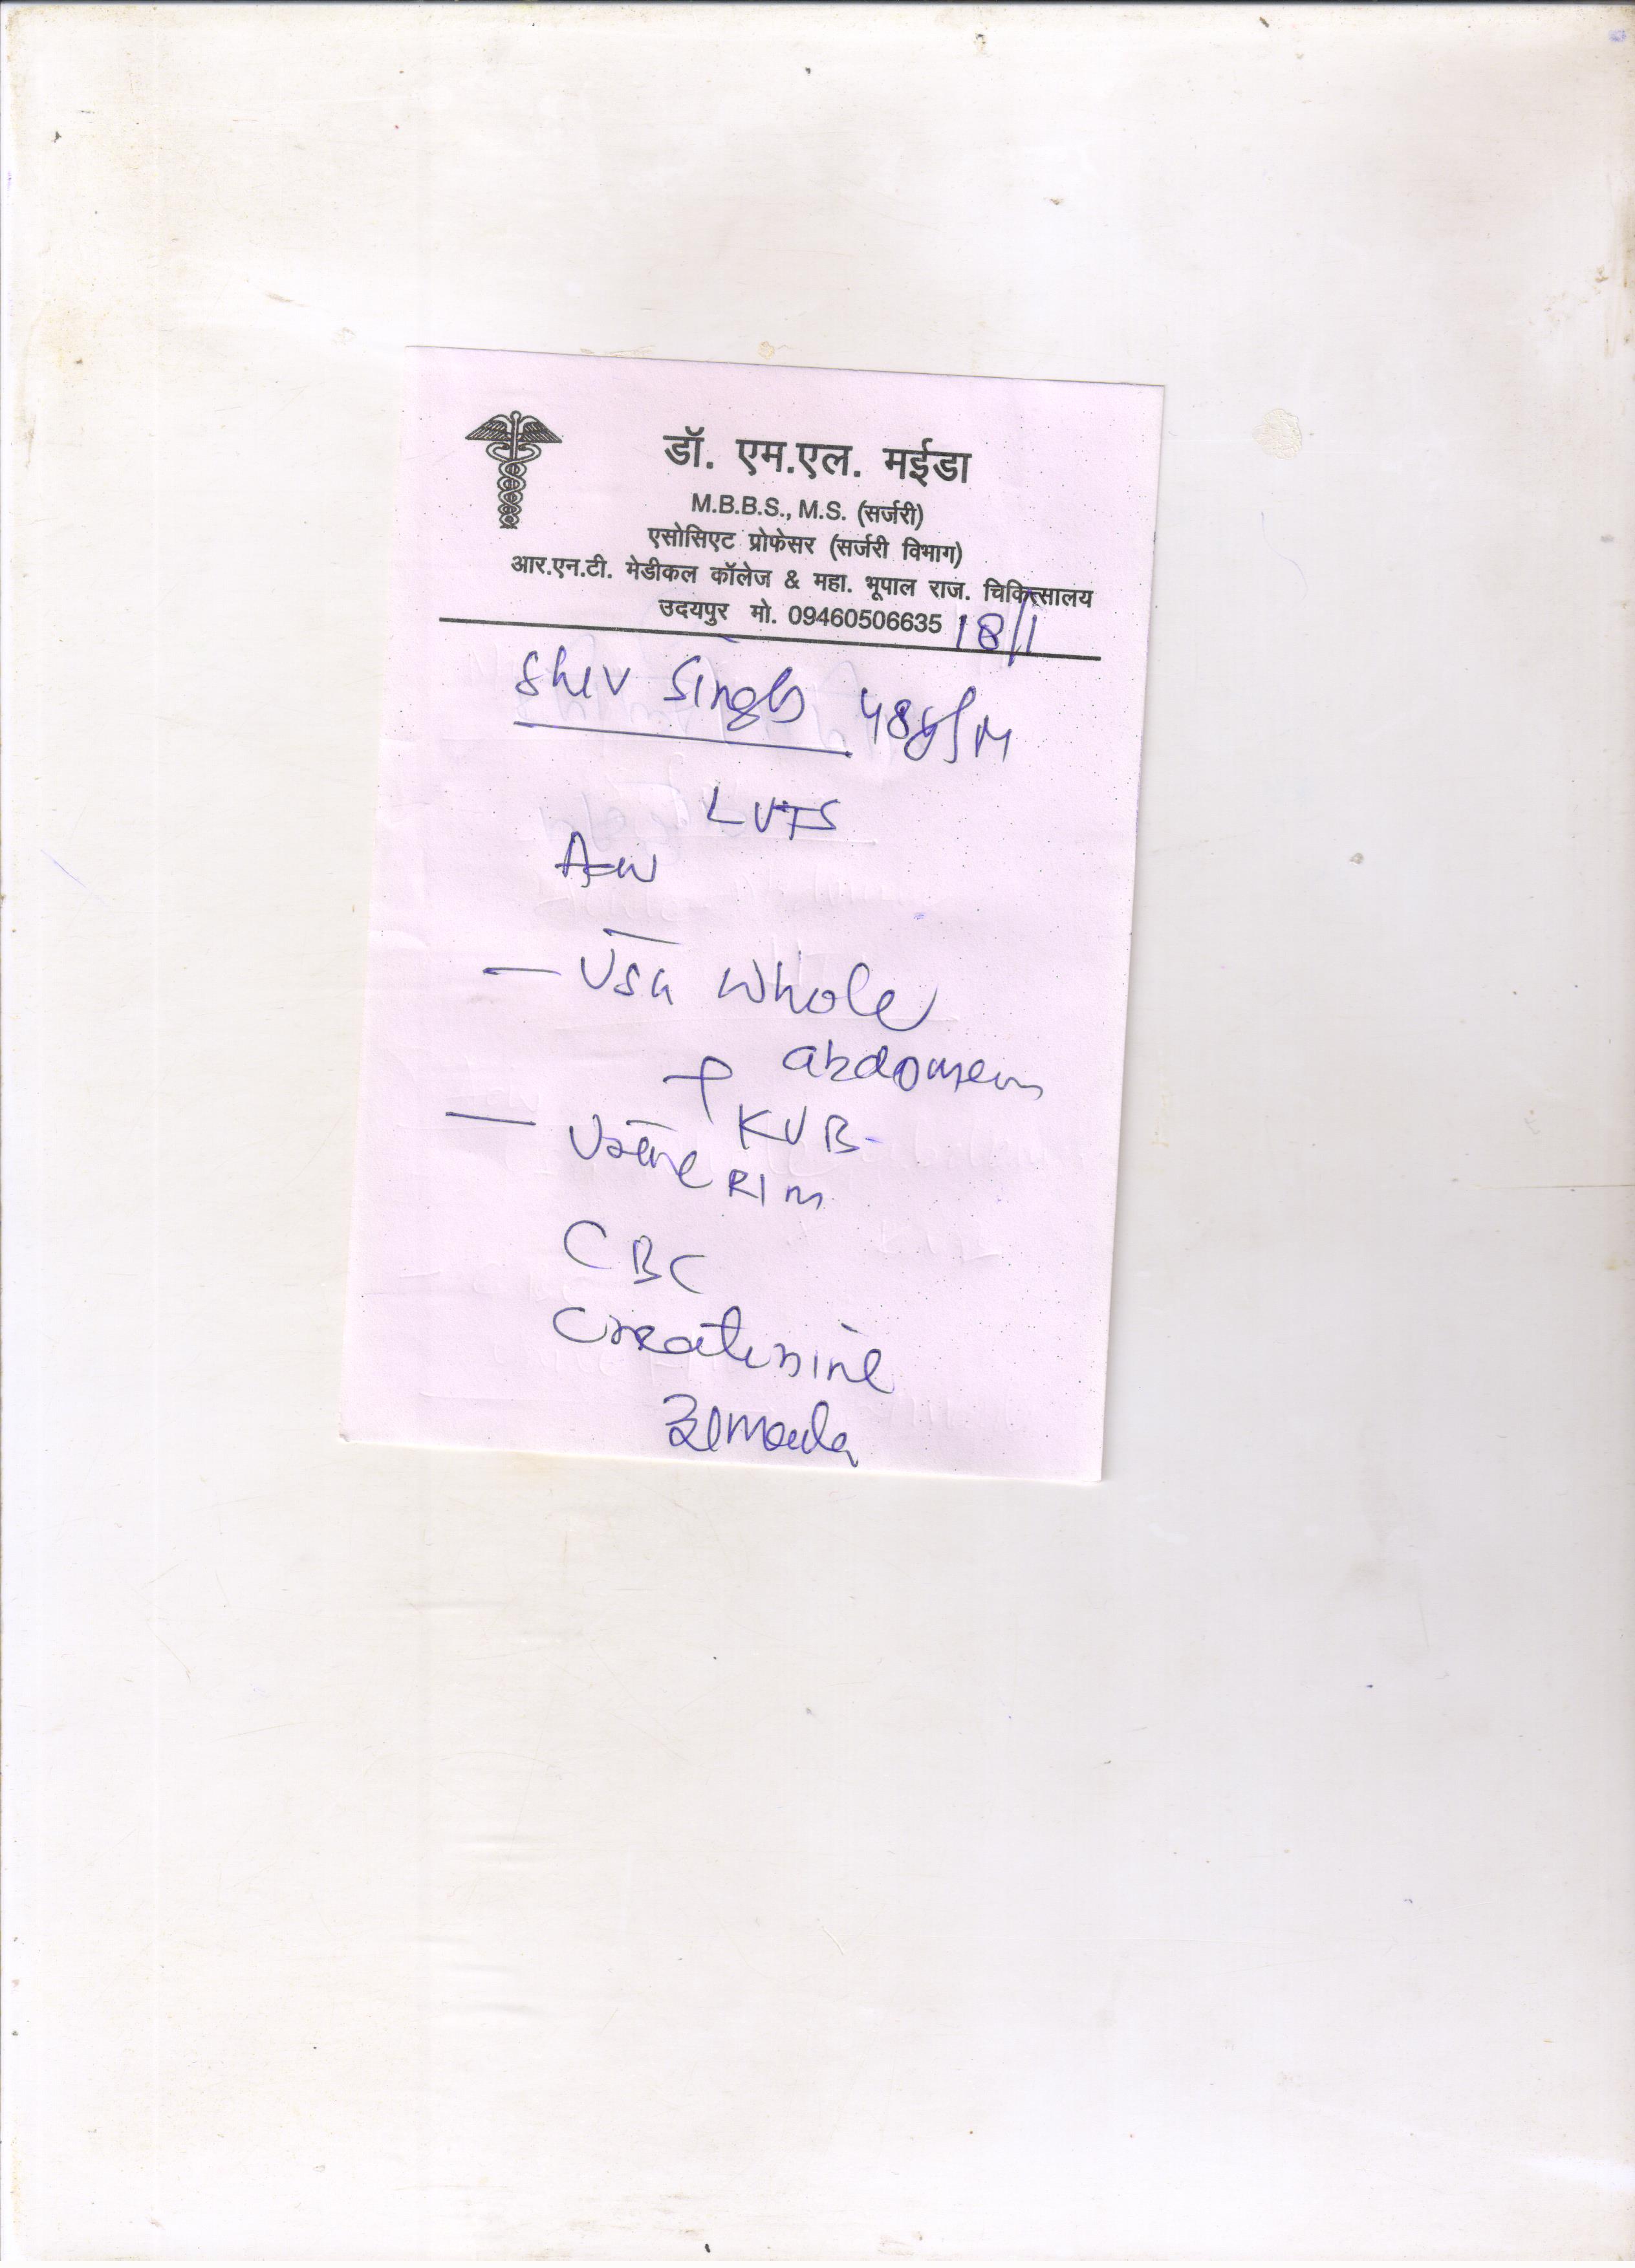 डॉ. एम.एल. मईडा
M.B.B.S., M.S. (सर्जरी)
एसोसिएट प्रोफेसर (सर्जरी विभाग)
आर.एन.टी. मेडीकल कॉलेज & महा. भूपाल राज. चिकित्सालय
उदयपुर मो. 09460506635 18/1
Shiv Singh 48y/M
LUTS
Adv
— USG Whole
abdomen
+ KUB
— Urine R/M
CBC
Creatinine